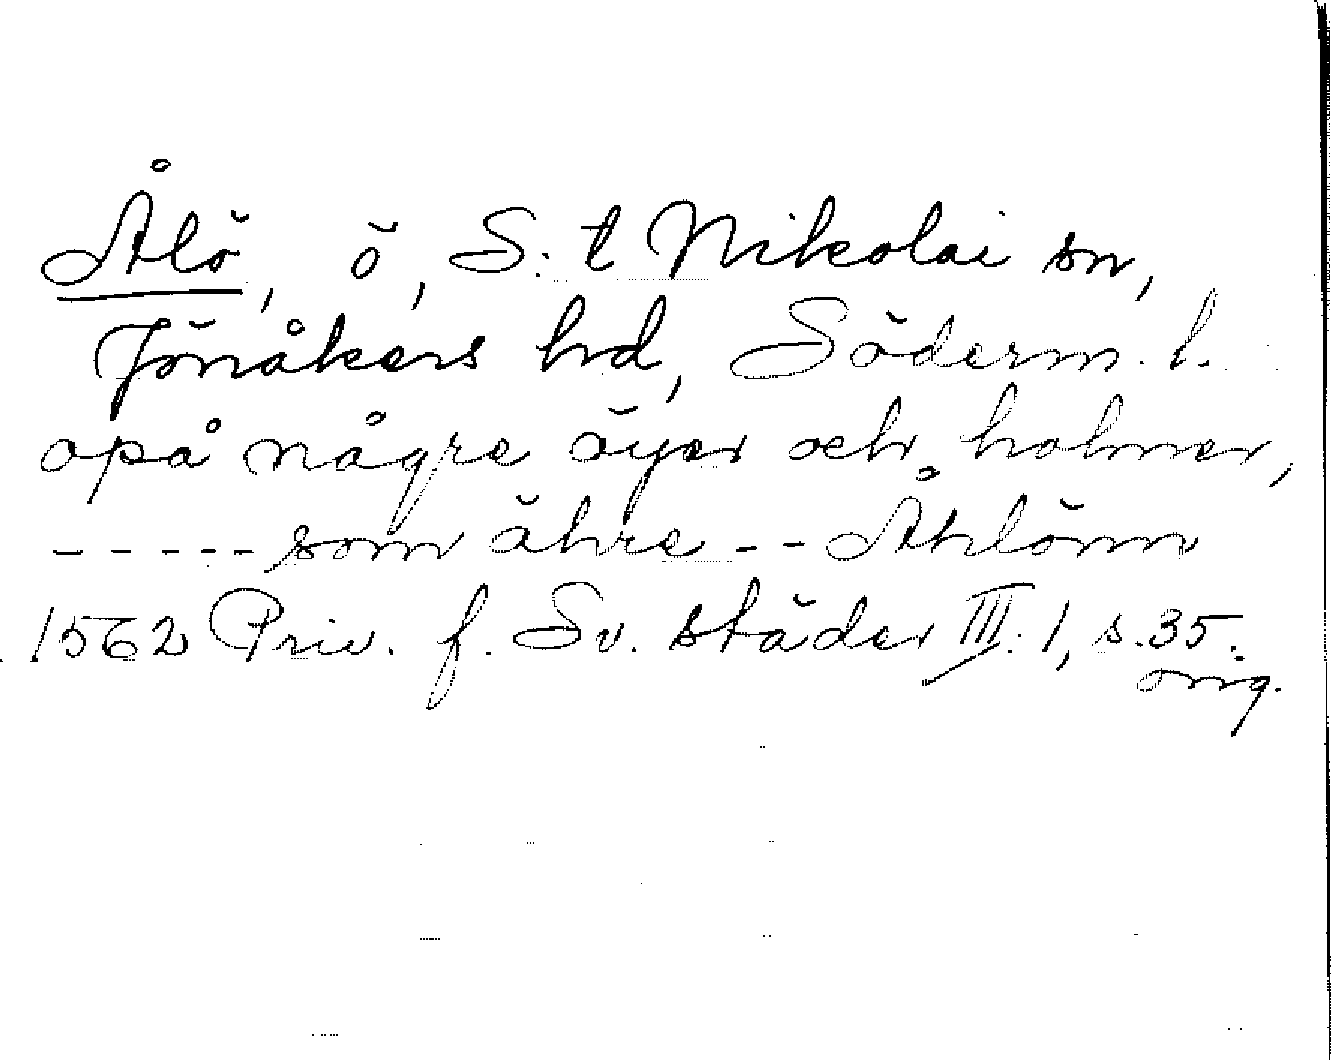 Ålö, ö, S:t Nikolai sn,
Jönåkers hd, Söderm. l.
opå någre öyer och holmer,
----- som ähre -- Åhlönn
1562 Priv. f. Sv. städer III:1, s. 35.
orig.